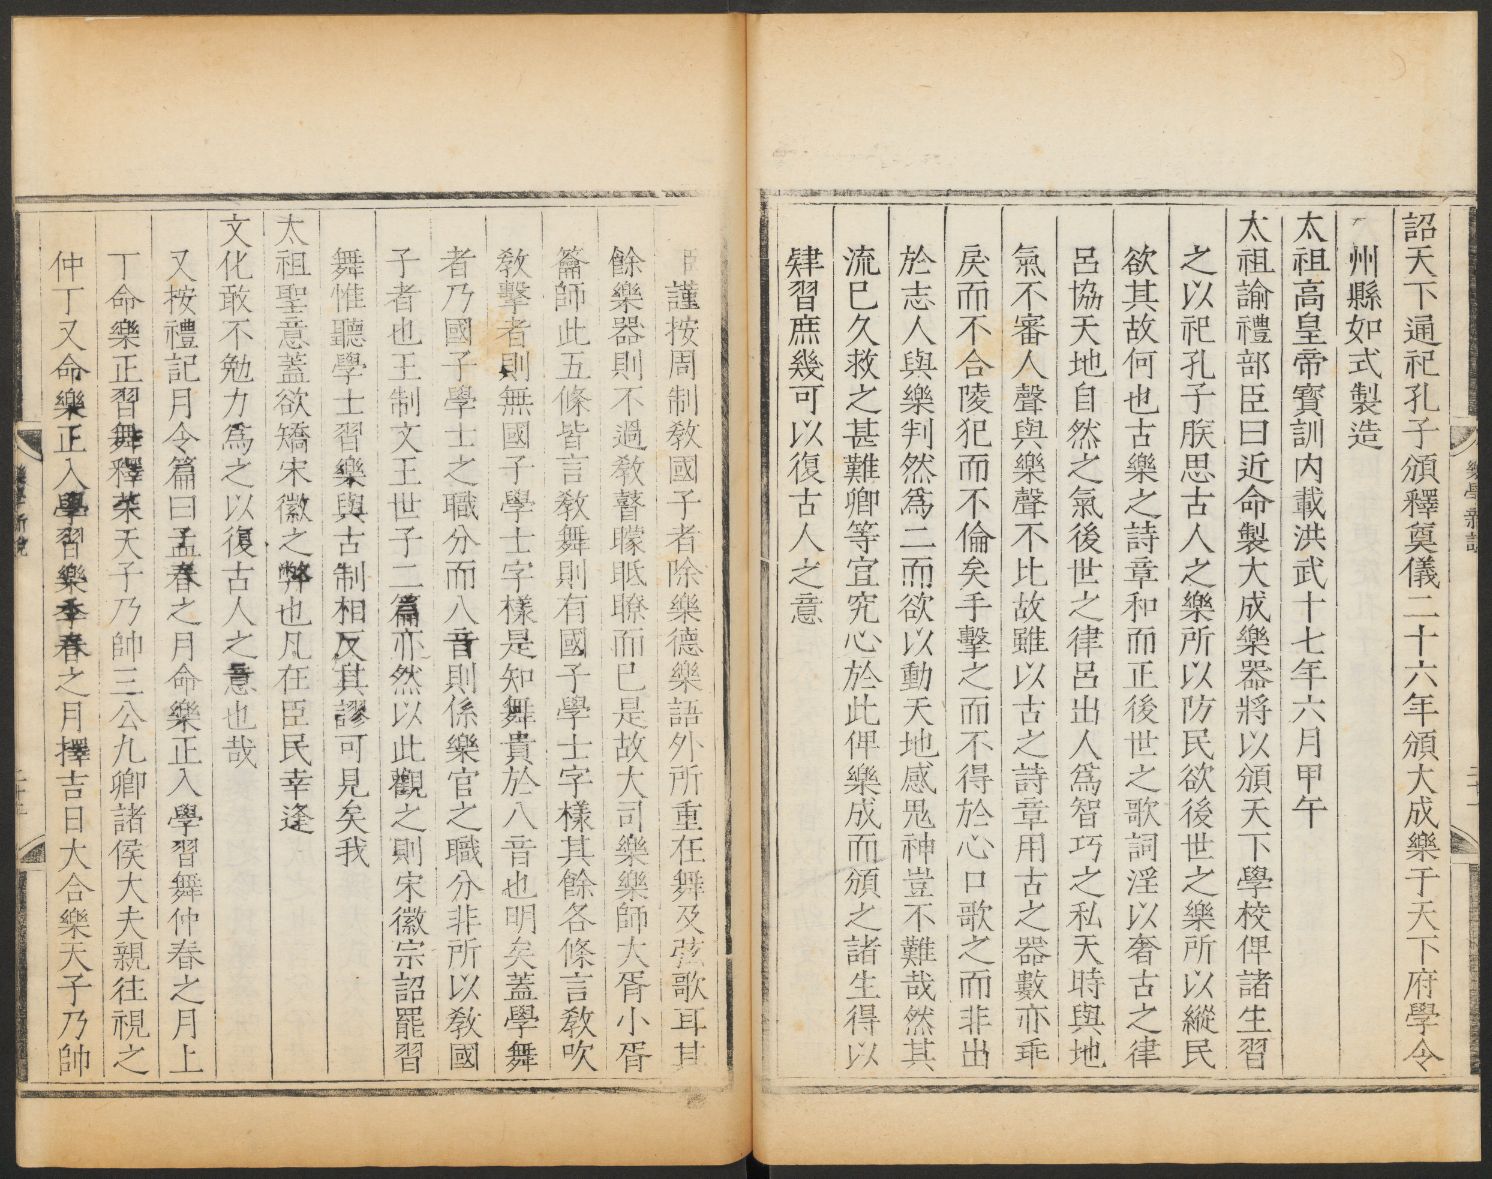 詔天下通祀孔子頒釋奠儀二十六年頒大成樂于天下府學令
州縣如式製造
太祖高皇帝寶訓內載洪武十七年六月甲午
太祖諭禮部臣曰近命製大成樂器將以頒天下學校俾諸生習
之以祀孔子朕思古人之樂所以防民欲後世之樂所以縱民
欲其故何也古樂之詩章和而正後世之歌詞淫以奢古之律
呂協天地自然之氣後世之律呂出人為智巧之私天時與地
氣不審人聲與樂聲不比故雖以古之詩章用古之器數亦乖
戾而不合陵犯而不倫矣手擊之而不得於心口歌之而非出
於志人與樂判然為二而欲以動天地感鬼神豈不難哉然其
流已久救之甚難卿等宜究心於此俾樂成而頒之諸生得以
肄習庶幾可以復古人之意
樂學新說
二十一
臣謹按周制教國子者除樂德樂語外所重在舞及弦歌耳其
餘樂器則不過教瞽矇眡瞭而已是故大司樂樂師大胥小胥
籥師此五條皆言教舞則有國子學士字樣其餘各條言教吹
教擊者則無國子學士字樣是知舞貴於八音也明矣蓋學舞
者乃國子學士之職分而八音則係樂官之職分非所以教國
子者也王制文王世子二篇亦然以此觀之則宋徽宗詔罷習
舞惟聽學士習樂與古制相反其謬可見矣我
太祖聖意蓋欲矯宋徽之弊也凡在臣民幸逢
文化敢不勉力為之以復古人之意也哉
又按禮記月令篇曰孟春之月命樂正入學習舞仲春之月上
丁命樂正習舞釋菜天子乃帥三公九卿諸侯大夫親往視之
仲丁又命樂正入學習樂季春之月擇吉日大合樂天子乃帥
樂學新說